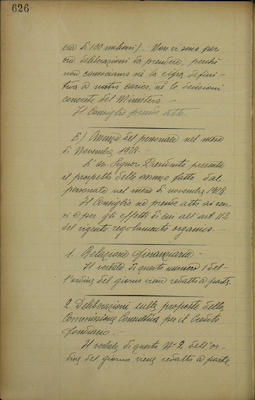 626
via di 100 milioni). Non vi sono per
ciò deliberazioni da prendere, perché
non conosciamo nè la cifra defini-
tiva a nostro carico, nè le decisioni
concrete del Ministero.
Il Consiglio prende atto.
5) Assenze del personale nel mese
di Novembre 1928.
Il Signor Presidente presenta
il prospetto delle assenze fatte dal
personale nel mese di novembre 1928.
Il Consiglio ne prende atto ai sen
si e per gli effetti di cui all'art. 112
del vigente regolamento organico.
1. Relazione finanziaria.
Il verbale di questo numero 1 del-
l'ordine del giorno viene redatto a parte.
2. Deliberazioni sulle proposte della
Commissione Consultiva per il Credito
fondiario.
Il verbale di questo N° 2 dell'or-
dine del giorno viene redatto a parte.